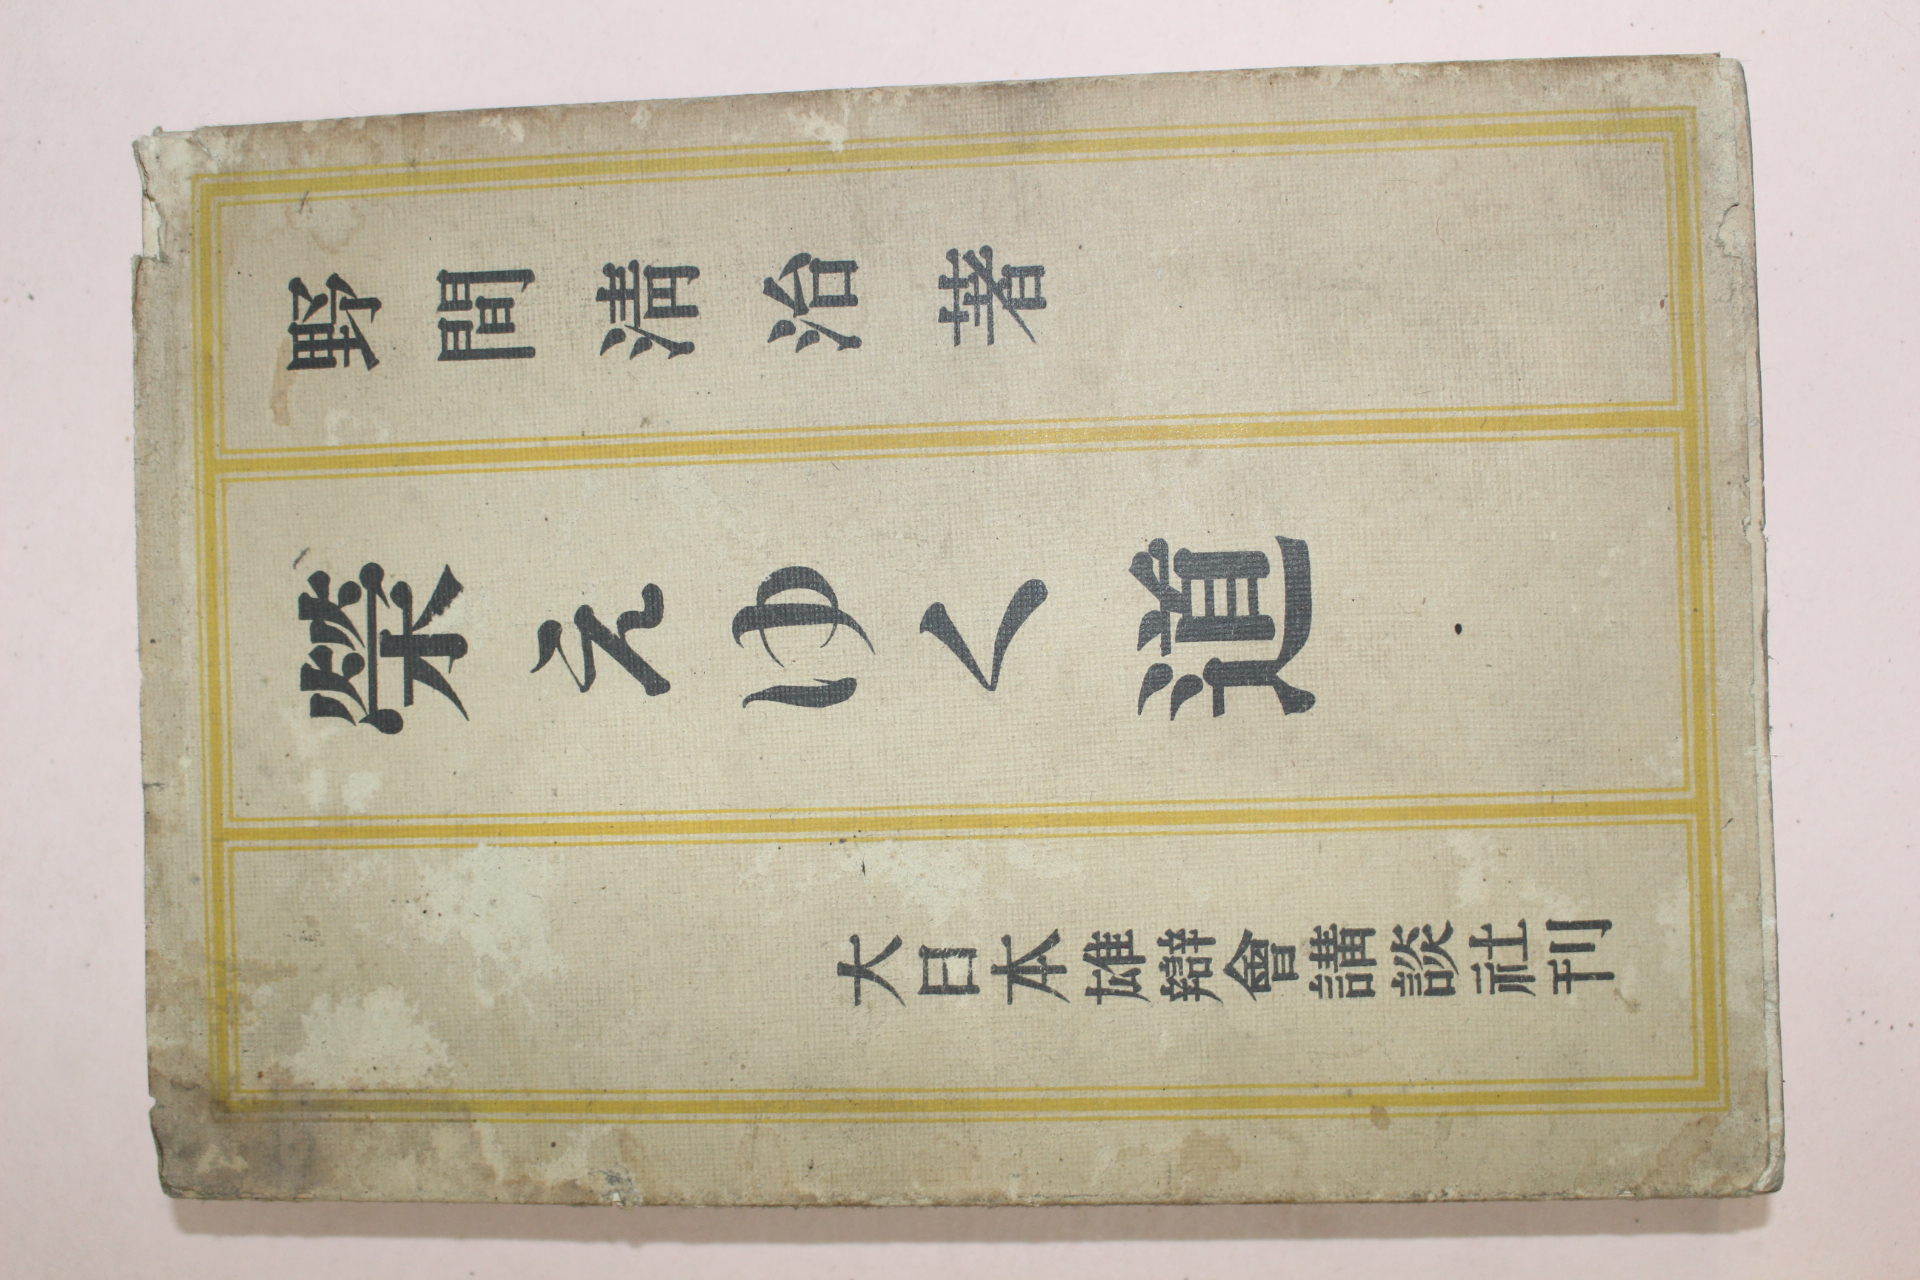 野間清治著
榮えゆく道
大日本雄辯會講談社刊